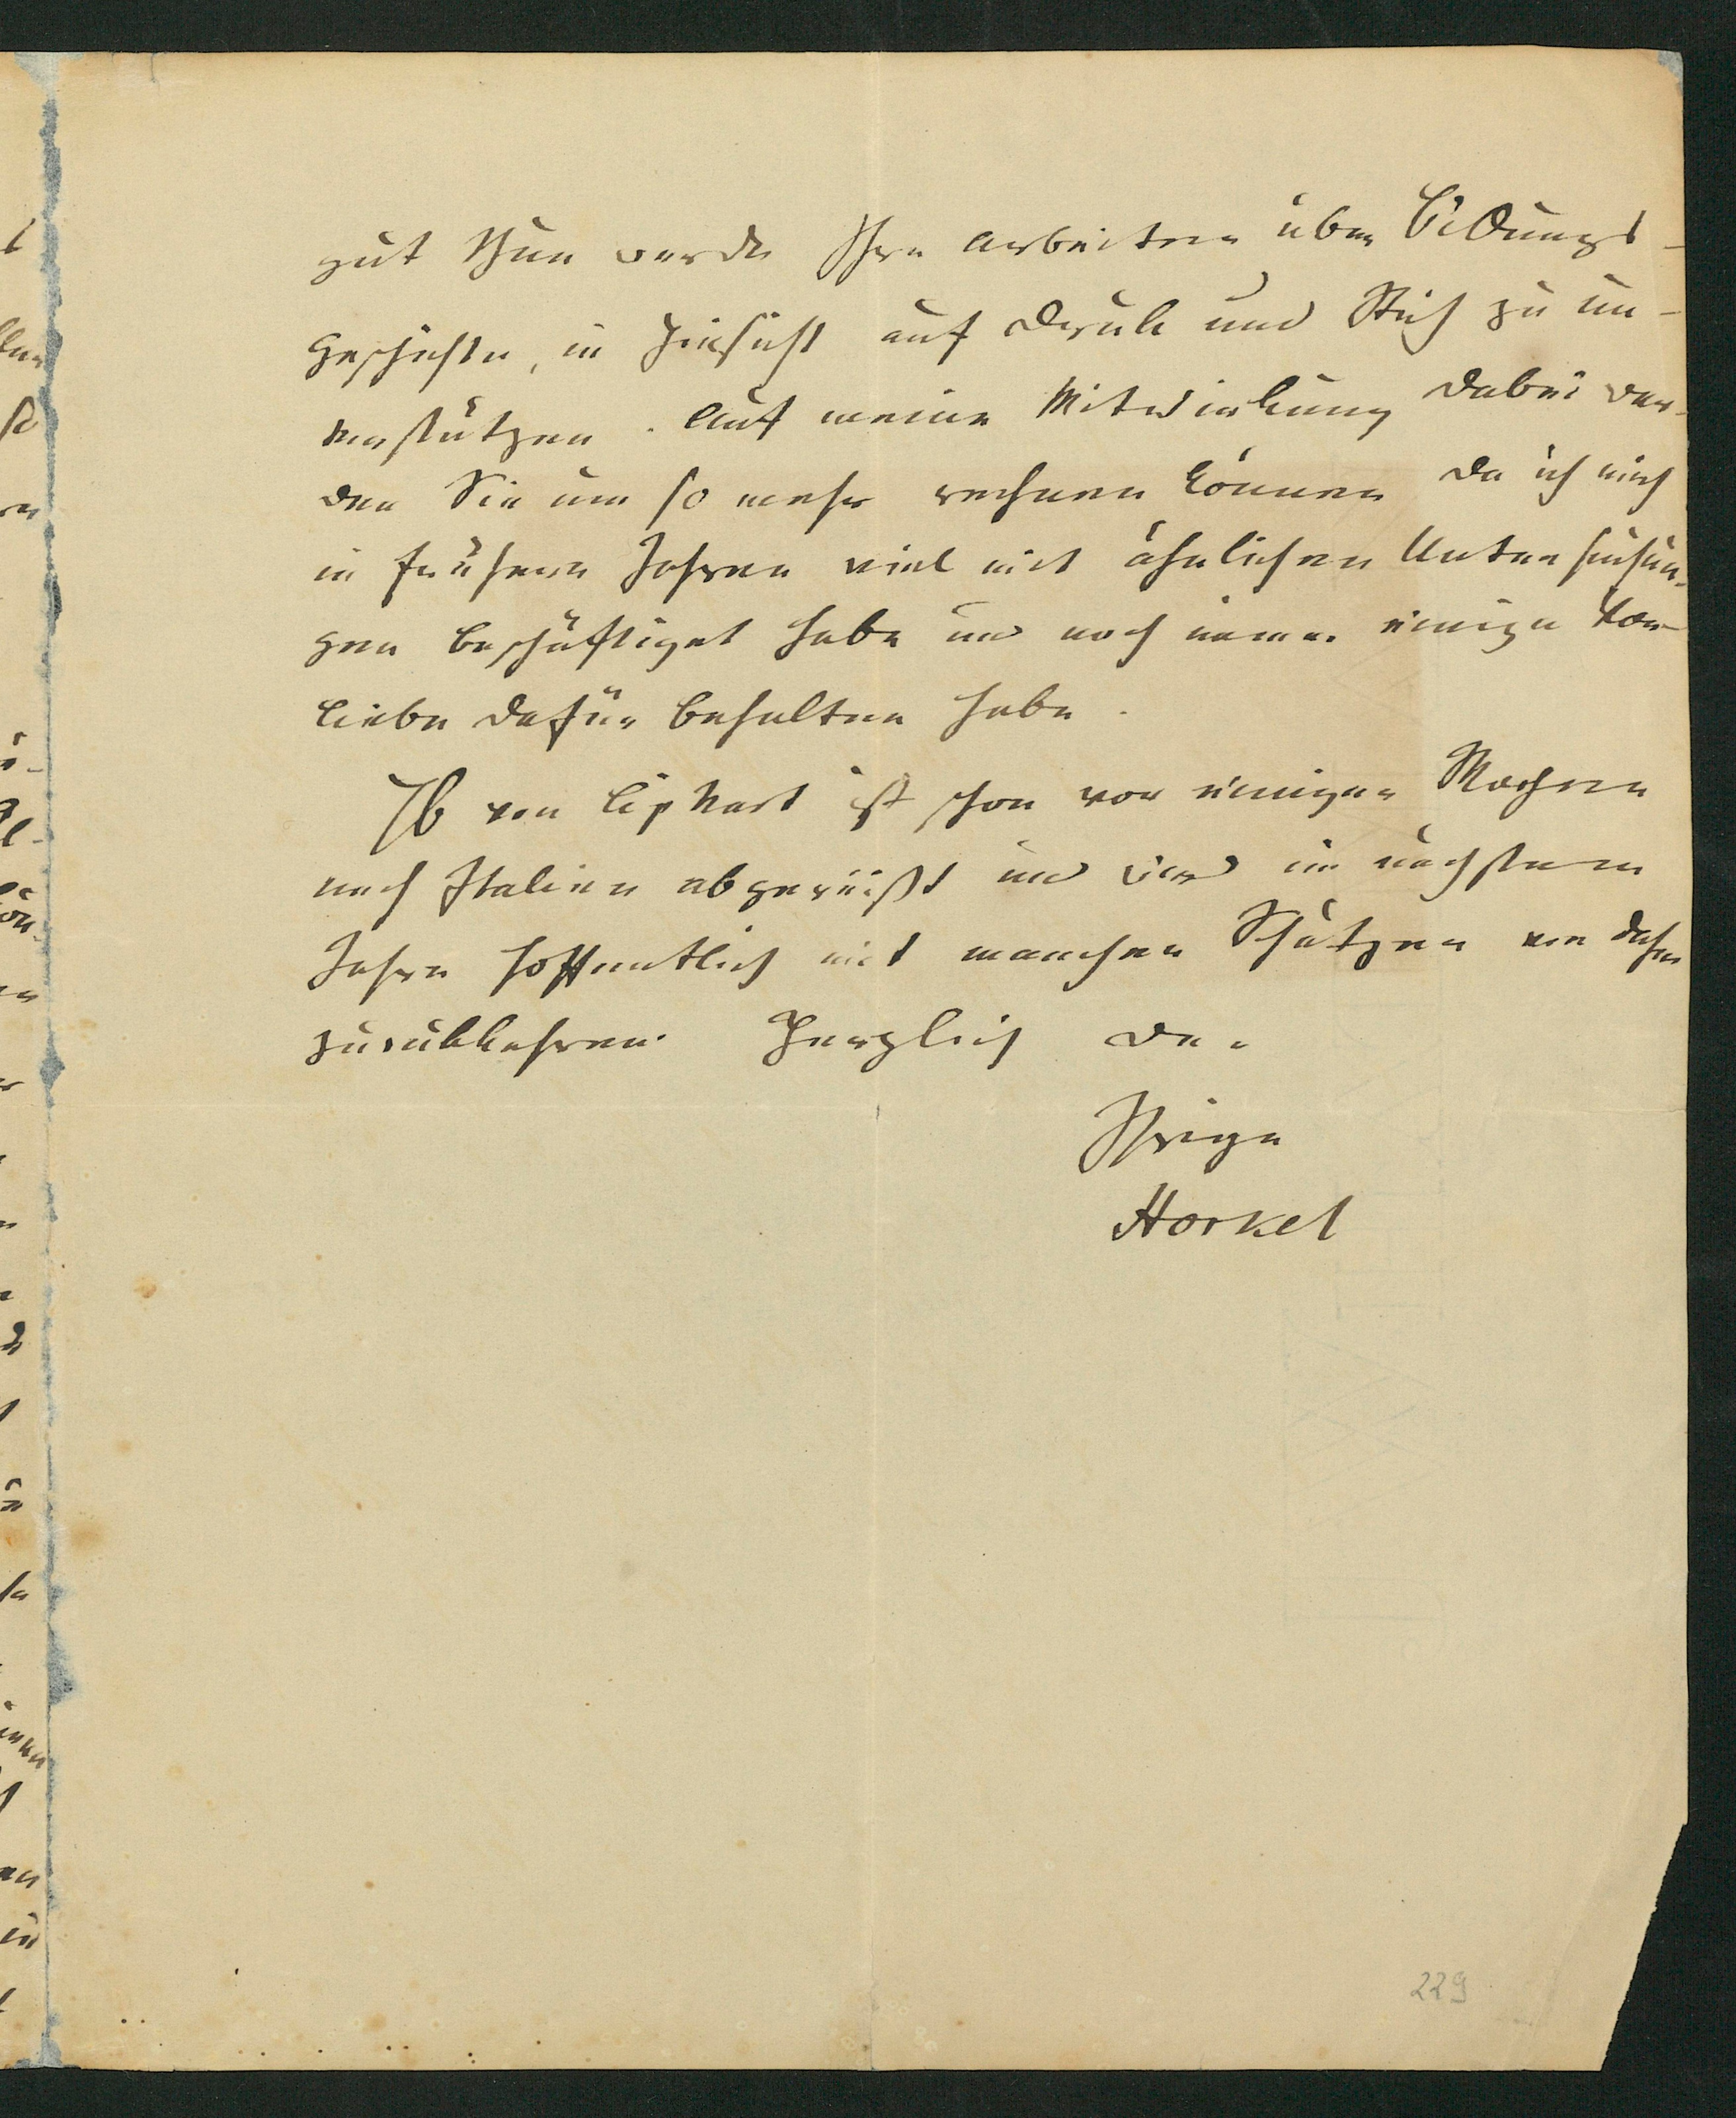 gut thun werde Ihre Arbeiten über Bildungs-
geschichte, in Hinsicht auf Druck und Stich zu un-
terstützen. Auf meine Mitwirkung dabei wer-
den Sie um so mehr rechnen können da ich mich
in frühern Jahren viel mit ähnlichen Untersuchun-
gen beschäftiget habe und noch immer einige Vor-
liebe dafür behalten habe.
von Liphart ist schon vor einigen Wochen
nach Italien abgereißt und wird im nächsten
Jahre hoffentlich mit manchen Schätzen von daher
zurükkehren. Herzlich der
Ihrige
Horkel
229